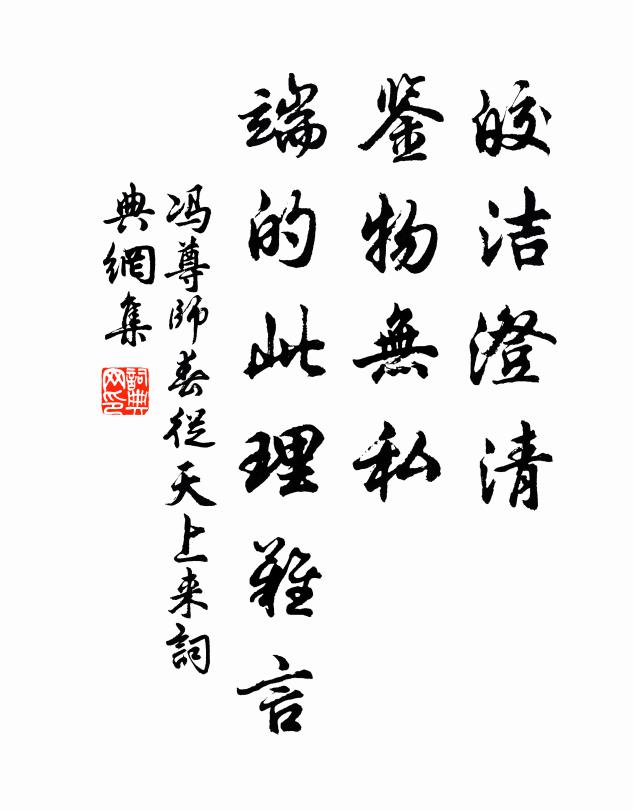 皎洁澄清
鉴物無私
端的此理難言
冯尊師春從天上来詞
典網集
詞典网印